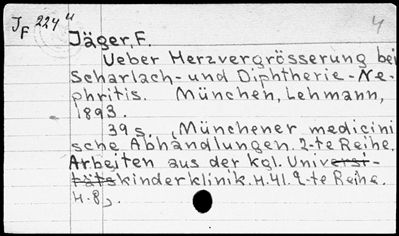 J/F 224" 4
Jäger, F.
Ueber Herzvergrösserung bei
Scharlach- und Diphtherie-Ne-
phritis. München, Lehmann,
1893.
39 s. (Münchener medicini
sche Abhandlungen. 2-te Reihe.
Arbeiten aus der kgl. Universi-
täts kinderklinik. H. 41. 2-te Reihe.
H. 8).